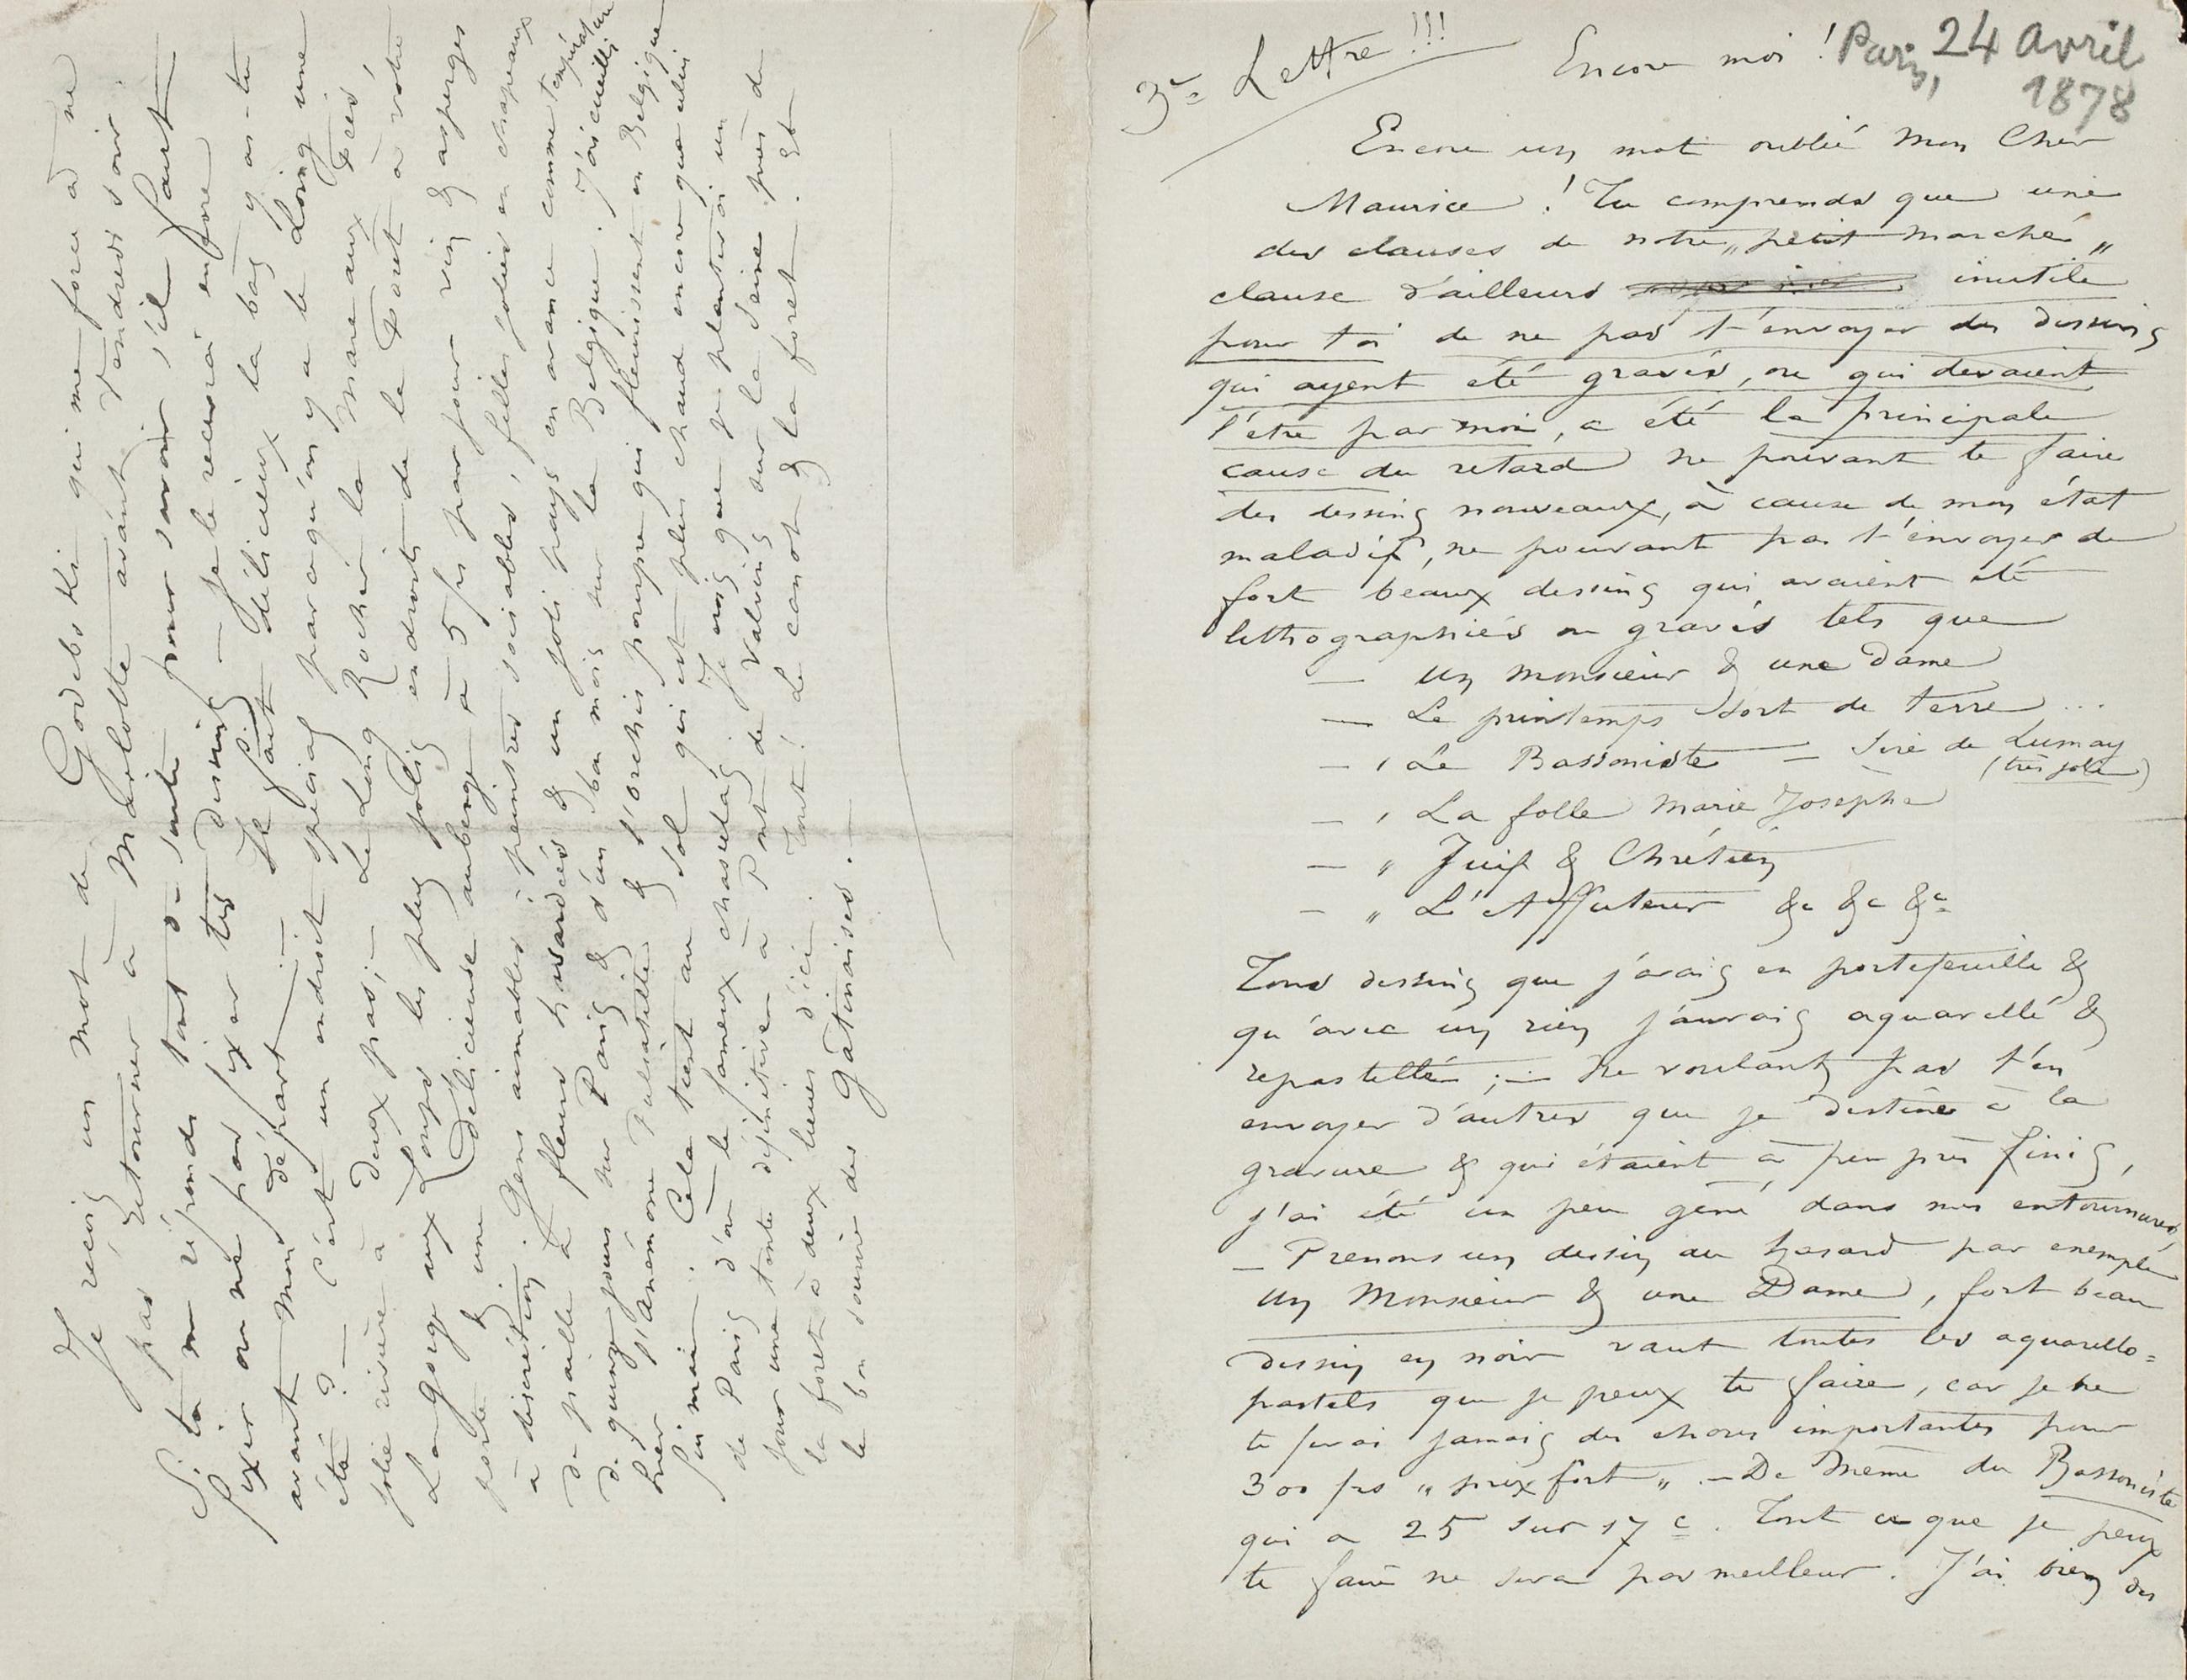 3e Lettre !!!
Encore moi !
Paris, 24 Avril
1878
Encore un mot oublié Mon Cher
Maurice ! Tu comprends que une
des clauses de notre „petit marché„
clause d'ailleurs inutile
pour toi de ne pas t'envoyer des dessins
qui ayent été gravés, ou qui devaient
l'être par moi, a été la principale
cause du retard ne pouvant te faire
des dessins nouveaux, à cause de mon état
maladif, ne pouvant pas t'envoyer de
fort beaux dessins qui avaient été
lithographiés ou gravés tels que
— Un monsieur & une Dame
— Le printemps sort de terre ...
— , Le Bassoniste — Sire de Lumay
(très joli)
— , La folle Marie Josèphe
— „ Juif & Chrétien
— „ L'Affuteur &c &c &c
Tous dessins que j'avais en portefeuille &
qu'avec un rien j'aurais aquarellé &
repastellé ; — Ne voulant pas t'en
envoyer d'autres que je destine à la
gravure & qui étaient à peu près finis,
j'ai été un peu gêné dans mes entournures,
— Prenons un dessin au hasard par exemple
Un Monsieur & une Dame, fort beau
dessin en noir vaut toutes les aquarello=
pastels que je peux te faire, car je ne
te ferai jamais des choses importantes pour
300 frs „prix fort„ . — De même du Bassoniste
qui a 25 sur 17 c. Tout ce que je peux
te faire ne sera pas meilleur. J'ai bien des
Je reçois un mot de Godebski qui me force à ne
pas retourner à Marlotte avant Vendredi soir.
Si tu me réponds tout de suite pour savoir s'il faut
fixer ou ne pas fixer tes dessins — je le recevrai encore
avant mon départ. — Il fait délicieux là bas y as-tu
été ? — C'est un endroit spécial parcequ'on y a le Loing une
jolie rivière à deux pas ; — Le Long Rocher la Mare aux Fées
La Gorge aux Loups les plus jolis endroits de la Forêt à votre
porte & une délicieuse auberge à 5 frs par jour vin & asperges
à discrétion. Gens aimables, peintres sociables, filles jolies en chapeaux
de paille à fleurs hasardées & un joli pays en avance comme température
de quinze jours sur Paris & d'un bon mois sur la Belgique. J'ai cueilli
hier l'Anémone Pulsatille & l'orchis pourpre qui fleurissent en Belgique
fin mai. Cela tient au sol qui est plus chaud encore que celui
de Paris d'où le fameux chasselas ; Je crois que je planterai un
jour une tente définitive à Pont de Valvins sur la Seine près de
la foret à deux lieues d'ici. Tout ! Le canot & la foret. Et
le bon sourire des Gâtinaises. —